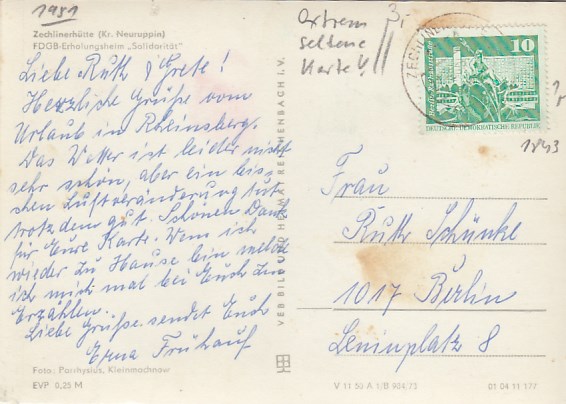 1981
Zechlinerhütte (Kr. Neuruppin)
FDGB-Erholungsheim „Solidarität"
Liebe Ruth & Grete!
Herzliche Grüße vom
Urlaub in Rheinsberg.
Das Wetter ist leider nicht
sehr schön, aber ein bis=
schen Luftveränderung tut
trotzdem gut. Schönen Dank
für Eure Karte. Wenn ich
wieder zu Hause bin melde
ich mich mal bei Euch zum
Erzählen.
Liebe Grüße sendet Euch
Erna Frühauf
Foto: Parchysius, Kleinmachnow
EVP 0,25 M
VEB BILD UND HEIMAT REICHENBACH I. V.
Extrem
seltene
Karte!!
3,-
ZECHLINE
10
DEUTSCHE DEMOKRATISCHE REPUBLIK
1843
Frau
Ruth Schünke
1017 Berlin
Leninplatz 8
V 11 50 A 1/B 904/73
01 04 11 177